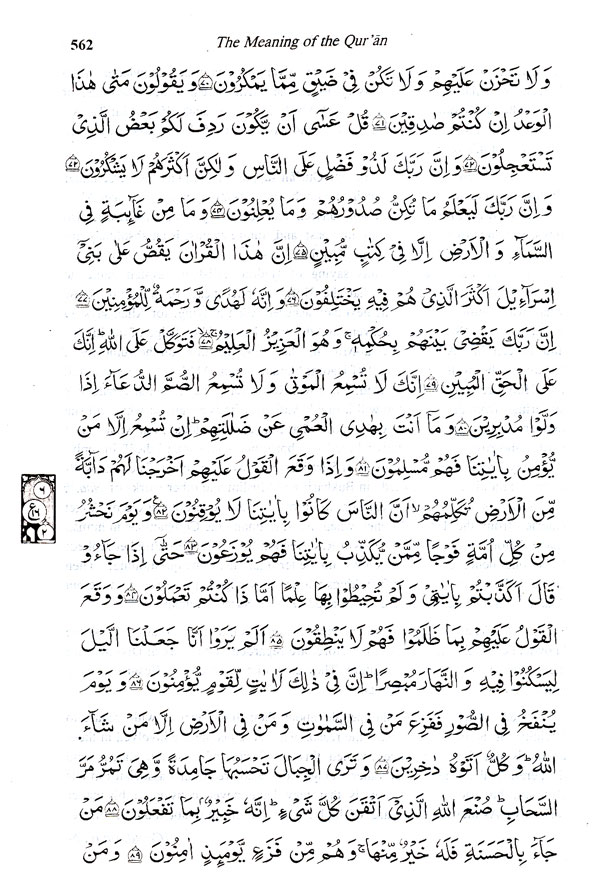 562
The Meaning of the Qur'ān
وَلَا تَحْزَنْ عَلَيْهِمْ وَلَا تَكُنْ فِيْ ضَيْقٍ مِّمَّا يَمْكُرُوْنَ ﴿۷۰﴾ وَيَقُوْلُوْنَ مَتٰى هٰذَا
الْوَعْدُ اِنْ كُنْتُمْ صٰدِقِيْنَ ﴿۷۱﴾ قُلْ عَسٰٓى اَنْ يَّكُوْنَ رَدِفَ لَكُمْ بَعْضُ الَّذِيْ
تَسْتَعْجِلُوْنَ ﴿۷۲﴾ وَاِنَّ رَبَّكَ لَذُوْ فَضْلٍ عَلَى النَّاسِ وَلٰكِنَّ اَكْثَرَهُمْ لَا يَشْكُرُوْنَ ﴿۷۳﴾
وَاِنَّ رَبَّكَ لَيَعْلَمُ مَا تُكِنُّ صُدُوْرُهُمْ وَمَا يُعْلِنُوْنَ ﴿۷۴﴾ وَمَا مِنْ غَآئِبَةٍ فِي
السَّمَآءِ وَالْاَرْضِ اِلَّا فِيْ كِتٰبٍ مُّبِيْنٍ ﴿۷۵﴾ اِنَّ هٰذَا الْقُرْاٰنَ يَقُصُّ عَلٰى بَنِيْٓ
اِسْرَآءِيْلَ اَكْثَرَ الَّذِيْ هُمْ فِيْهِ يَخْتَلِفُوْنَ ﴿۷۶﴾ وَاِنَّهٗ لَهُدًى وَّرَحْمَةٌ لِّلْمُؤْمِنِيْنَ ﴿۷۷﴾
اِنَّ رَبَّكَ يَقْضِيْ بَيْنَهُمْ بِحُكْمِهٖ ۚ وَهُوَ الْعَزِيْزُ الْعَلِيْمُ ﴿۷۸﴾ فَتَوَكَّلْ عَلَى اللّٰهِ ؕ اِنَّكَ
عَلَى الْحَقِّ الْمُبِيْنِ ﴿۷۹﴾ اِنَّكَ لَا تُسْمِعُ الْمَوْتٰى وَلَا تُسْمِعُ الصُّمَّ الدُّعَآءَ اِذَا
وَلَّوْا مُدْبِرِيْنَ ﴿۸۰﴾ وَمَآ اَنْتَ بِهٰدِي الْعُمْيِ عَنْ ضَلٰلَتِهِمْ ؕ اِنْ تُسْمِعُ اِلَّا مَنْ
يُّؤْمِنُ بِاٰيٰتِنَا فَهُمْ مُّسْلِمُوْنَ ﴿۸۱﴾ وَاِذَا وَقَعَ الْقَوْلُ عَلَيْهِمْ اَخْرَجْنَا لَهُمْ دَآبَّةً
مِّنَ الْاَرْضِ تُكَلِّمُهُمْ ۙ اَنَّ النَّاسَ كَانُوْا بِاٰيٰتِنَا لَا يُوْقِنُوْنَ ﴿۸۲﴾ وَيَوْمَ نَحْشُرُ
مِنْ كُلِّ اُمَّةٍ فَوْجًا مِّمَّنْ يُّكَذِّبُ بِاٰيٰتِنَا فَهُمْ يُوْزَعُوْنَ ﴿۸۳﴾ حَتّٰٓى اِذَا جَآءُوْ
قَالَ اَكَذَّبْتُمْ بِاٰيٰتِيْ وَلَمْ تُحِيْطُوْا بِهَا عِلْمًا اَمَّا ذَا كُنْتُمْ تَعْمَلُوْنَ ﴿۸۴﴾ وَوَقَعَ
الْقَوْلُ عَلَيْهِمْ بِمَا ظَلَمُوْا فَهُمْ لَا يَنْطِقُوْنَ ﴿۸۵﴾ اَلَمْ يَرَوْا اَنَّا جَعَلْنَا الَّيْلَ
لِيَسْكُنُوْا فِيْهِ وَالنَّهَارَ مُبْصِرًا ؕ اِنَّ فِيْ ذٰلِكَ لَاٰيٰتٍ لِّقَوْمٍ يُّؤْمِنُوْنَ ﴿۸۶﴾ وَيَوْمَ
يُنْفَخُ فِي الصُّوْرِ فَفَزِعَ مَنْ فِي السَّمٰوٰتِ وَمَنْ فِي الْاَرْضِ اِلَّا مَنْ شَآءَ
اللّٰهُ ؕ وَكُلٌّ اَتَوْهُ دٰخِرِيْنَ ﴿۸۷﴾ وَتَرَى الْجِبَالَ تَحْسَبُهَا جَامِدَةً وَّهِيَ تَمُرُّ مَرَّ
السَّحَابِ ؕ صُنْعَ اللّٰهِ الَّذِيْٓ اَتْقَنَ كُلَّ شَيْءٍ ؕ اِنَّهٗ خَبِيْرٌۢ بِمَا تَفْعَلُوْنَ ﴿۸۸﴾ مَنْ
جَآءَ بِالْحَسَنَةِ فَلَهٗ خَيْرٌ مِّنْهَا ۚ وَهُمْ مِّنْ فَزَعٍ يَّوْمَئِذٍ اٰمِنُوْنَ ﴿۸۹﴾ وَمَنْ